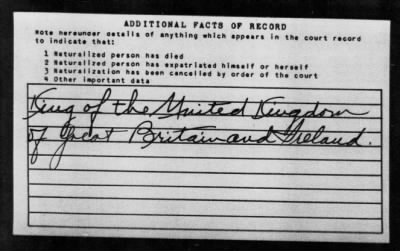 ADDITIONAL FACTS OF RECORD
Note hereunder details of anything which appears in the court record
to indicate that:
1 Naturalized person has died
2 Naturalized person has expatriated himself or herself
3 Naturalization has been cancelled by order of the court
4 Other important data
King of the United Kingdom
of Great Britain and Ireland.